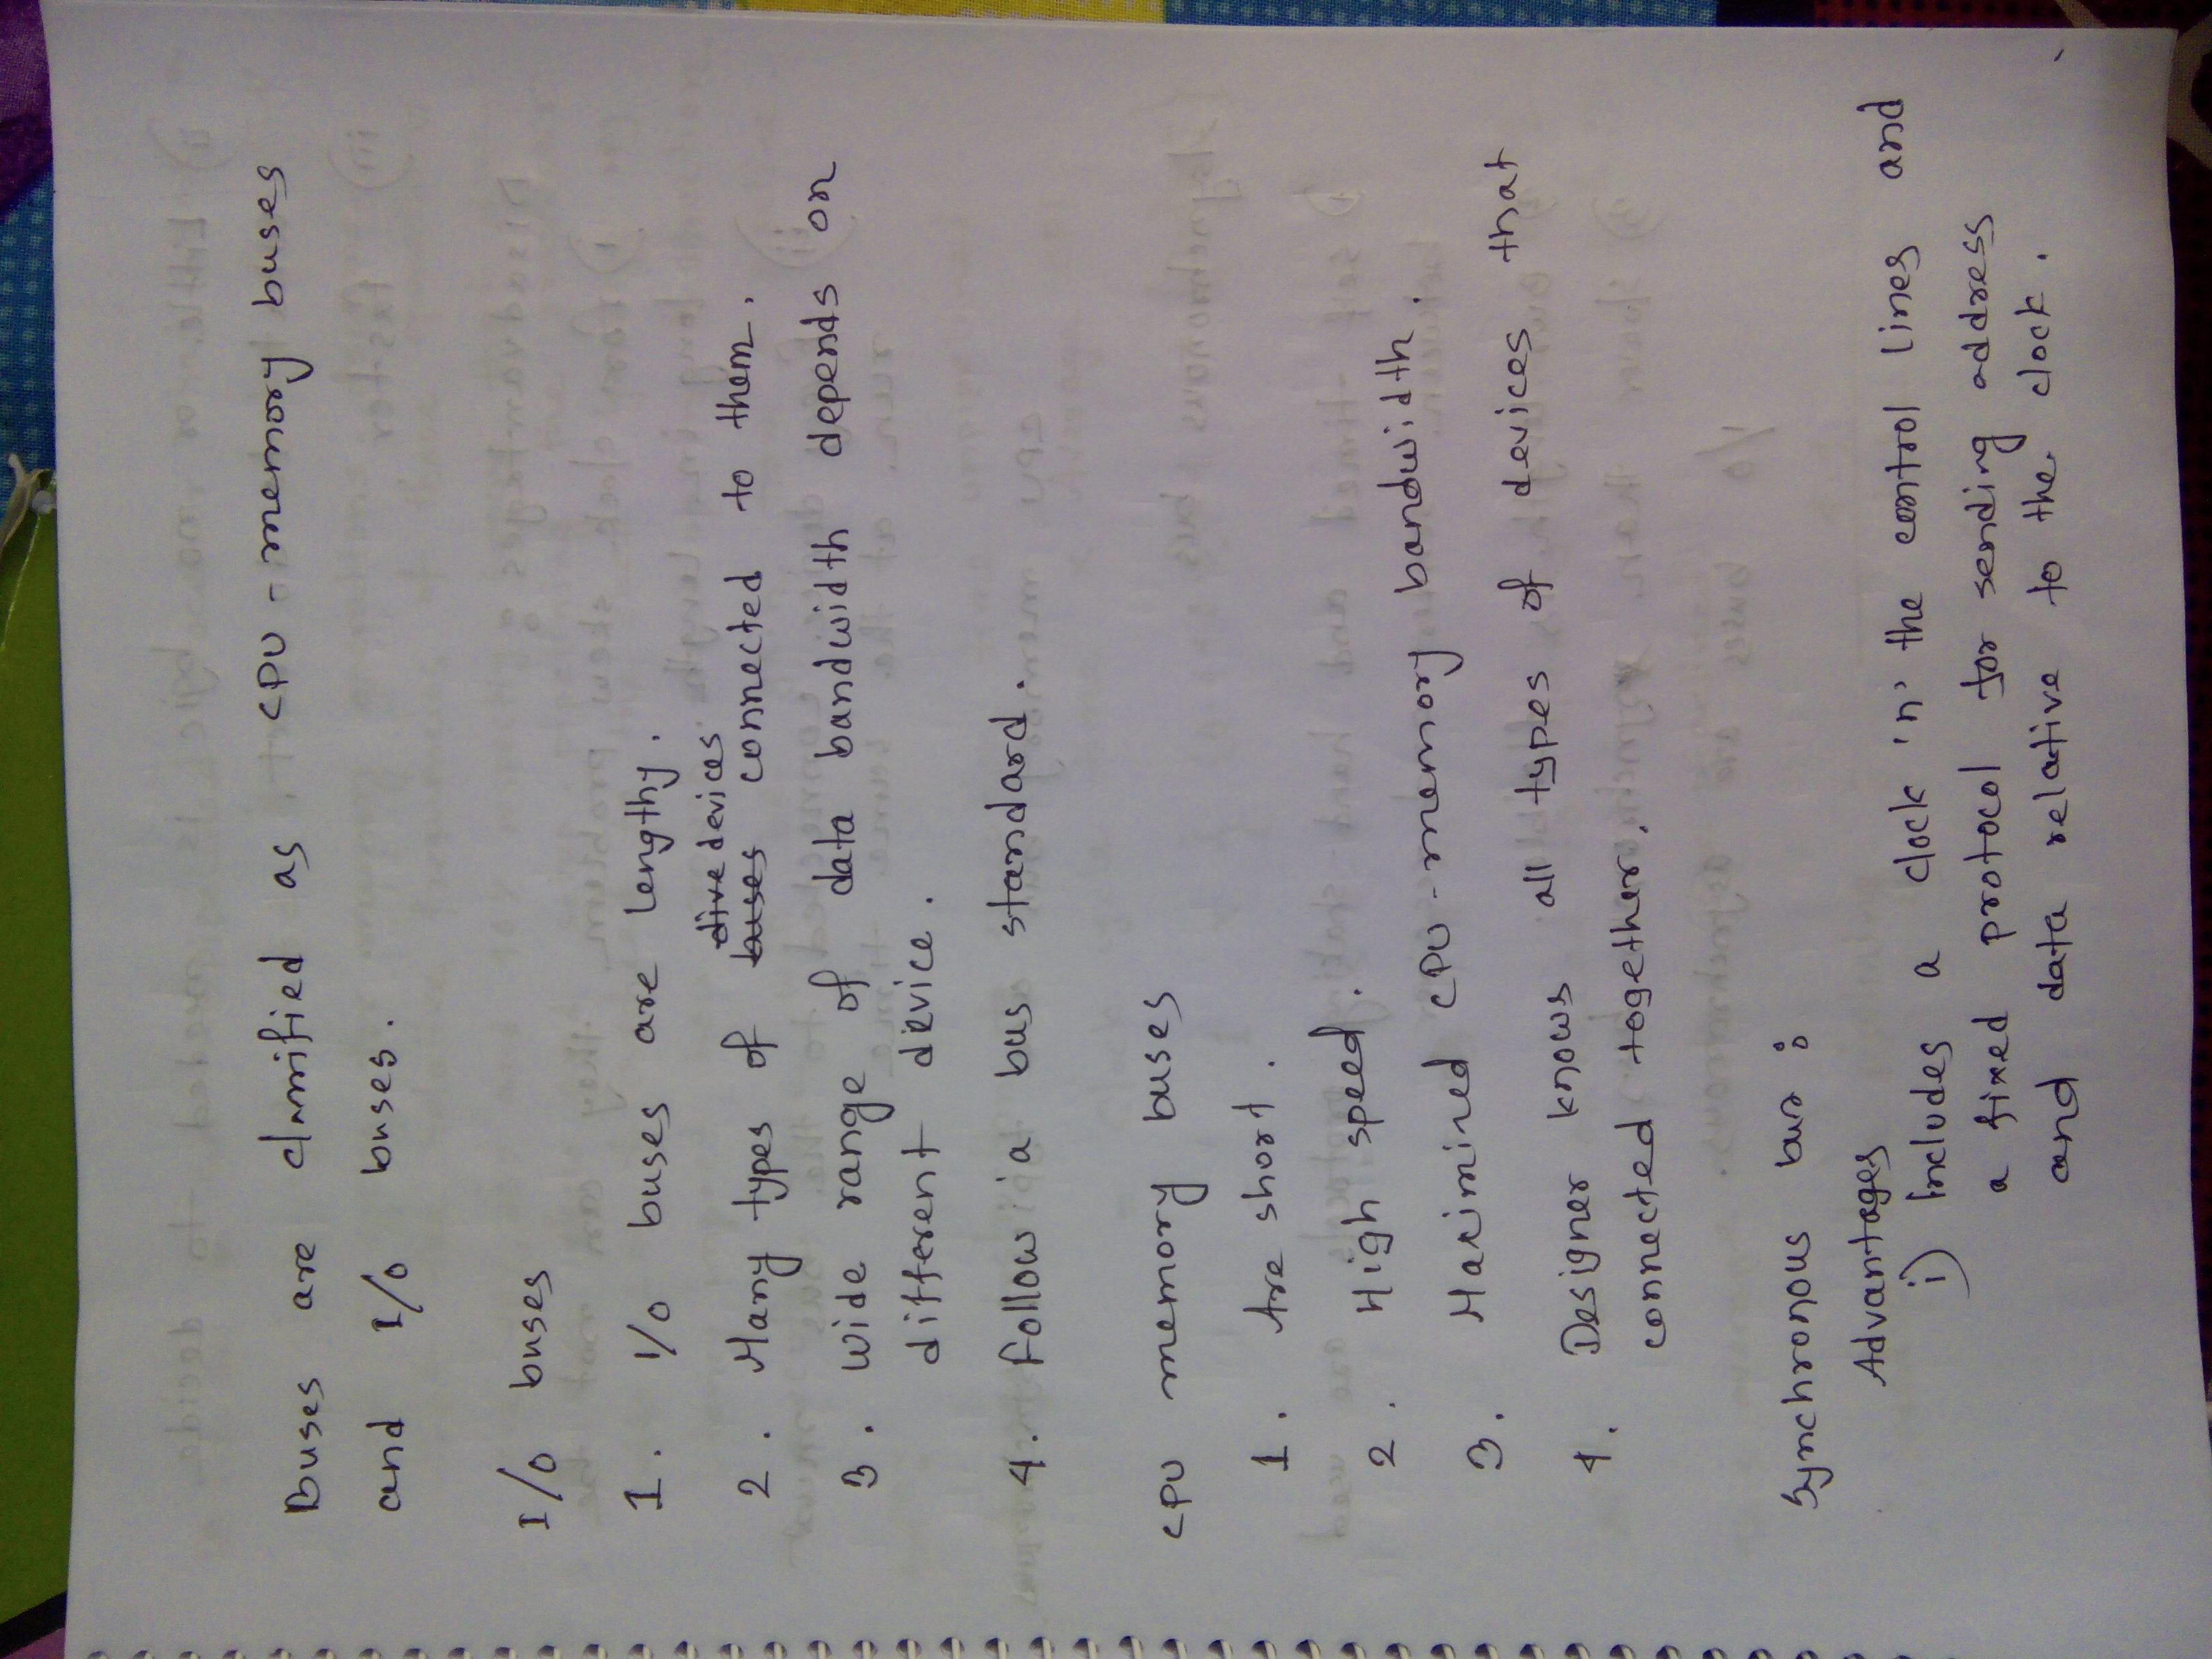 Buses are classified as CPU - memory buses
and I/O buses.
I/O buses
1. I/O buses are lengthy.
dive devices
2. Many types of buses connected to them.
3. Wide range of data bandwidth depends on
different device.
4. Follow a bus standard.
CPU memory buses
1. Are short.
2. High speed.
3. Maximized CPU - memory bandwidth.
4. Designer knows all types of devices that
connected together.
Synchronous bus :
Advantages
i) Includes a clock 'n' the control lines and
a fixed protocol for sending address
and data relative to the clock.